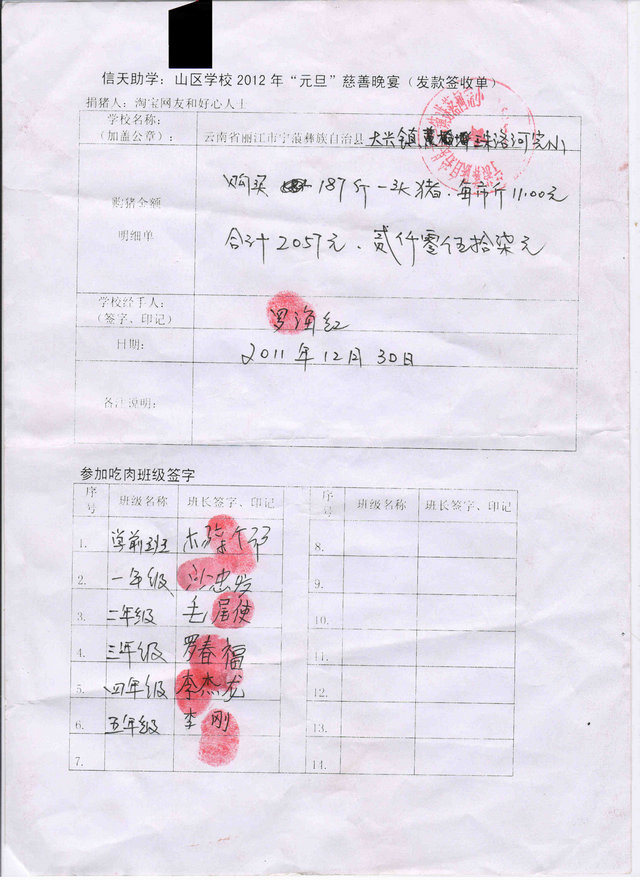 信天助学：山区学校2012年“元旦”慈善晚宴（发款签收单）
捐猪人：淘宝网友和好心人士
学校名称：
（加盖公章）：
云南省丽江市宁蒗彝族自治县 大兴镇 洛河完小
购买 187斤一头猪．每市斤11.00元
购猪金额
明细单
合计2057元．贰仟零伍拾柒元
学校经手人：
（签字、印记）
罗海红
日期：
2011年12月30日
备注说明：
参加吃肉班级签字
序号 班级名称 班长签字、印记 序号 班级名称 班长签字、印记
1. 学前班 8.
2. 一年级 9.
3. 二年级 毛 使 10.
4. 三年级 罗春福 11.
5. 四年级 李杰龙 12.
6. 五年级 李刚 13.
7. 14.